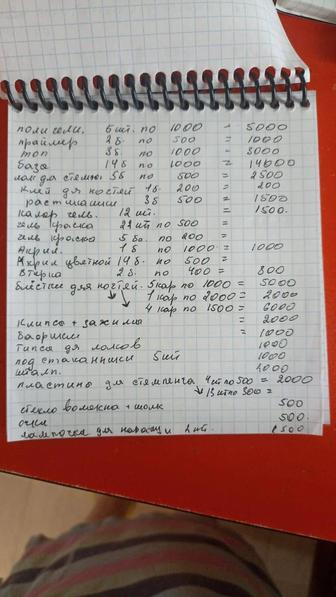 полигели. 6 шт. по 1000 - 5000
праймер 2б. по 500 = 1000
топ 3б. по 1000 = 3000
база 14б по 1000 = 14000
лак для стемп. 5б по 500 = 2500
клей для ногтей 1б. 200 = 200
растишки 3б 500 = 1500
калор гель. 12 шт. = 1500.
гель краска 22 шт по 500 =
гель краска 5 бо. по 200 =
Акрил. 1б по 1000 = 1000
Акрил цветной 14б. по 500 =
Втирка 2б. по 400 = 800
блёстки для ногтей. 5 кар по 1000 = 5000
1 кар по 2000 = 2000
4 кар по 1500 = 6000
Клипсы + зажимы = 2000
= 1000
Типсы для лаков 1000
под стаканники 5 шт 1000
штамп. 2000
пластина для стемпинга 4 шт по 500 = 2000
13 шт по 300 =
стекло волокна + шолк 500
очки 500.
лампочка для 2 шт. 1500